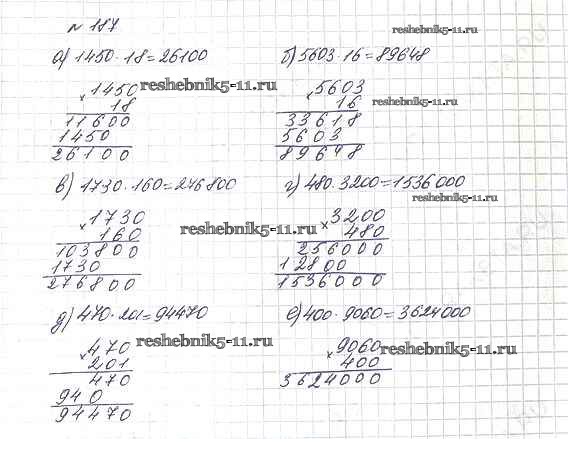 № 187
reshebnik5-11.ru
а) 1450·18=26100
б) 5603·16=89648
×1450
18
11600
1450
26100
reshebnik5-11.ru
×5603
16
33618
5603
89648
reshebnik5-11.ru
в) 1730·160=276800
г) 480·3200=1536000
reshebnik5-11.ru
×1730
160
103800
1730
276800
reshebnik5-11.ru
×3200
480
256000
12800
1536000
д) 470·201=94470
е) 400·9060=3624000
×470
201
470
940
94470
reshebnik5-11.ru
×9060
400
3624000
reshebnik5-11.ru